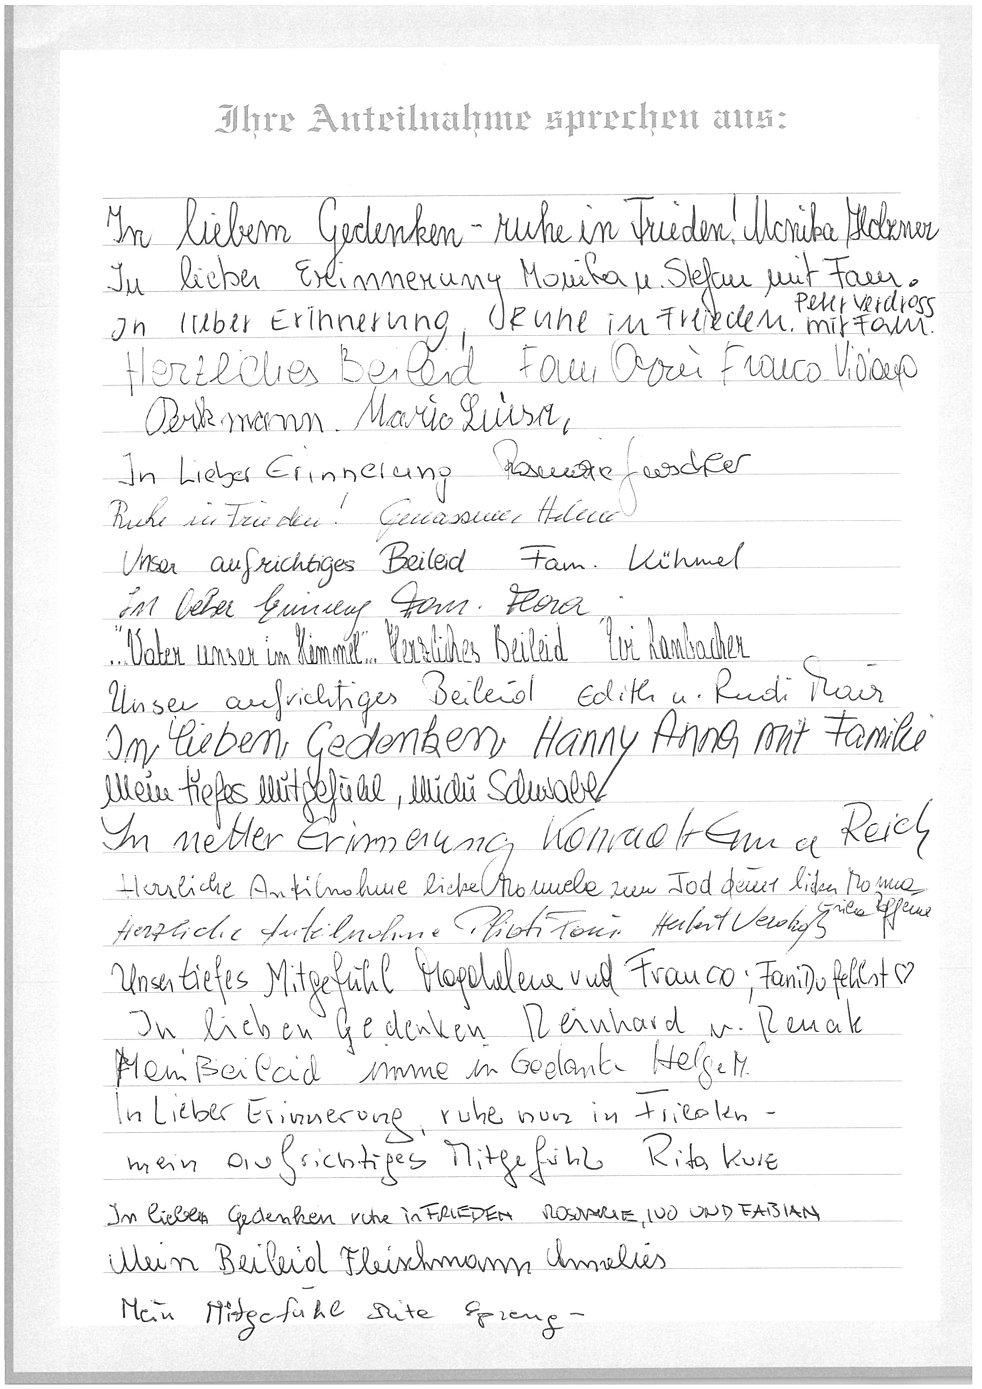 Ihre Anteilnahme sprechen aus:
In liebem Gedenken - ruhe in Frieden! Monika Holzner
In lieber Erinnerung Monika u. Stefan mit Fam.
In lieber Erinnerung, Ruhe in Frieden. Peter Verdross mit Fam.
Herzliches Beileid Fam Franco
Perkmann. Maria Luisa,
In Lieber Erinnerung Rosmarie
Ruhe in Frieden! Helene
Unser aufrichtiges Beileid Fam. Kühmel
In lieber Fam. Flora
"...Vater unser im Himmel"... Herzliches Beileid Evi Lambacher
Unser aufrichtiges Beileid Edith u. Rudi Mair
In lieben Gedenken Hanny Anna mit Familie
Mein tiefes Mitgefühl, Michi Schwabl
In netter Erinnerung Konrad + Emma Reich
Herzliche Anteilnahme liebe zum Tod deiner lieben Mamma
Herzliche Anteilnahme Herbert
Unser tiefes Mitgefühl Magdalena und Franco; Fani Du fehlst ♡
In lieben Gedenken Reinhard u. Renate
Mein Beileid imme in Gedank Helga M.
In Lieber Erinnerung, ruhe nun in Frieden -
mein aufrichtiges Mitgefühl Rita Kurz
In lieben Gedenken ruhe in FRIEDEN ROSMARIE, IVO UND FABIAN
Mein Beileid Fleischmann Annelies
Mein Mitgefühl